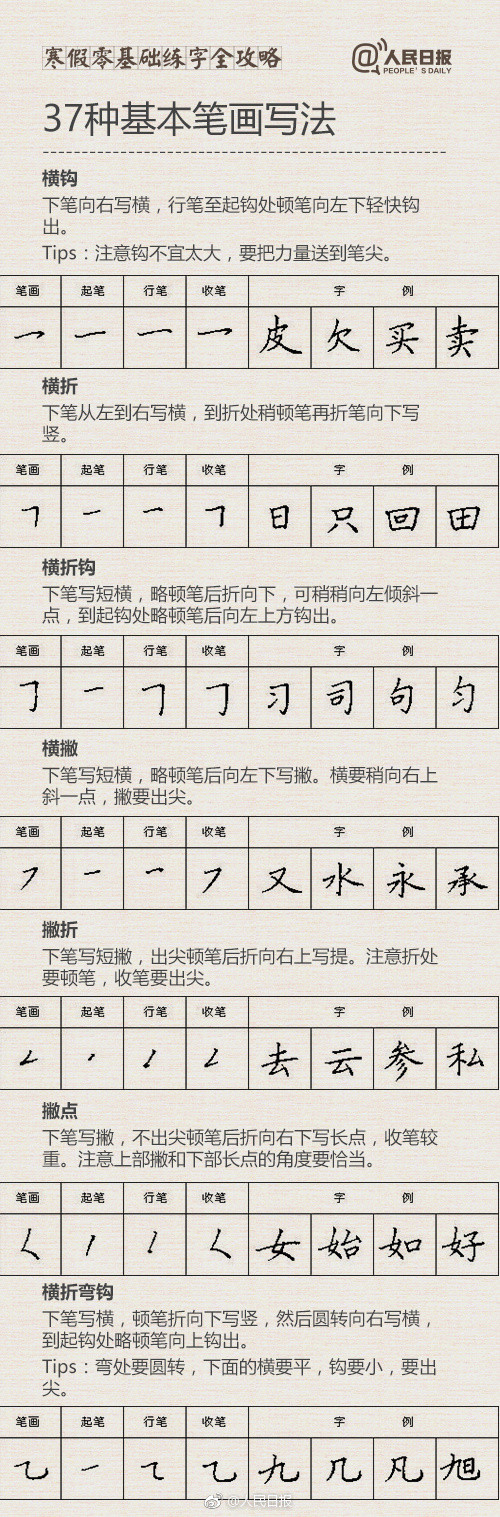 寒假零基础练字全攻略
@人民日报
PEOPLE'S DAILY
37种基本笔画写法
横钩
下笔向右写横，行笔至起钩处顿笔向左下轻快钩
出。
Tips：注意钩不宜太大，要把力量送到笔尖。
笔画 起笔 行笔 收笔 字 例
皮 欠 买 卖
横折
下笔从左到右写横，到折处稍顿笔再折笔向下写
竖。
笔画 起笔 行笔 收笔 字 例
日 只 回 田
横折钩
下笔写短横，略顿笔后折向下，可稍稍向左倾斜一
点，到起钩处略顿笔后向左上方钩出。
笔画 起笔 行笔 收笔 字 例
习 司 句 匀
横撇
下笔写短横，略顿笔后向左下写撇。横要稍向右上
斜一点，撇要出尖。
笔画 起笔 行笔 收笔 字 例
又 水 永 承
撇折
下笔写短撇，出尖顿笔后折向右上写提。注意折处
要顿笔，收笔要出尖。
笔画 起笔 行笔 收笔 字 例
去 云 参 私
撇点
下笔写撇，不出尖顿笔后折向右下写长点，收笔较
重。注意上部撇和下部长点的角度要恰当。
笔画 起笔 行笔 收笔 字 例
女 始 如 好
横折弯钩
下笔写横，顿笔折向下写竖，然后圆转向右写横，
到起钩处略顿笔向上钩出。
Tips：弯处要圆转，下面的横要平，钩要小，要出
尖。
笔画 起笔 行笔 收笔 字 例
九 几 凡 旭
@人民日报